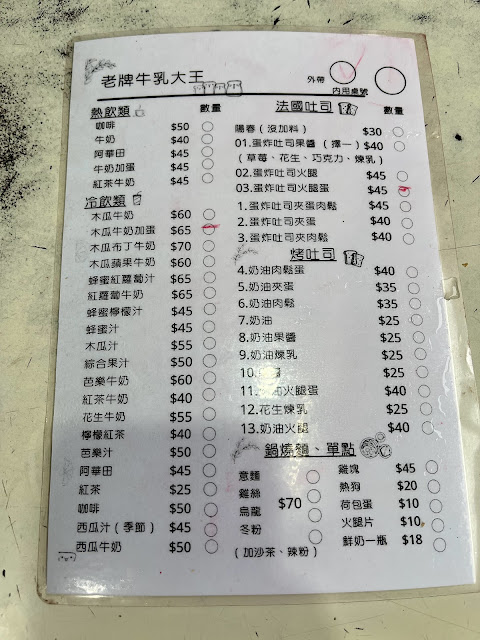 老牌牛乳大王
外帶
內用桌號
熱飲類 數量
咖啡 $50
牛奶 $40
阿華田 $45
牛奶加蛋 $45
紅茶牛奶 $45
冷飲類
木瓜牛奶 $60
木瓜牛奶加蛋 $65
木瓜布丁牛奶 $70
木瓜蘋果牛奶 $60
蜂蜜紅蘿蔔汁 $65
紅蘿蔔牛奶 $65
蜂蜜檸檬汁 $45
蜂蜜汁 $45
木瓜汁 $55
綜合果汁 $50
芭樂牛奶 $60
紅茶牛奶 $40
花生牛奶 $55
檸檬紅茶 $40
芭樂汁 $50
阿華田 $45
紅茶 $25
咖啡 $50
西瓜汁（季節） $45
西瓜牛奶 $50
法國吐司 數量
陽春（沒加料） $30
01.蛋炸吐司果醬（擇一） $40
（草莓、花生、巧克力、煉乳）
02.蛋炸吐司火腿 $45
03.蛋炸吐司火腿蛋 $45
1.蛋炸吐司夾蛋肉鬆 $45
2.蛋炸吐司夾蛋 $40
3.蛋炸吐司夾肉鬆 $40
烤吐司
4.奶油肉鬆蛋 $40
5.奶油夾蛋 $35
6.奶油肉鬆 $35
7.奶油 $25
8.奶油果醬 $25
9.奶油煉乳 $25
10. $25
11. 油火腿蛋 $40
12.花生煉乳 $25
13.奶油火腿 $40
鍋燒麵、單點
意麵
雞絲
烏龍
冬粉
$70
（加沙茶、辣粉）
雞塊 $45
熱狗 $20
荷包蛋 $10
火腿片 $10
鮮奶一瓶 $18